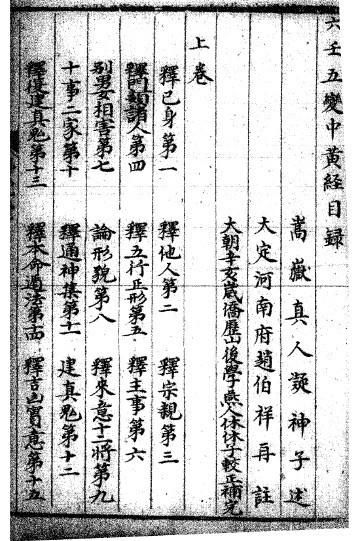 六壬五變中黄経目録
嵩嶽真人凝神子述
大定河南府趙伯祥再註
大朝辛亥歳僑歴山後學燕人休休子較正補完
上卷
釋已身第一 釋他人第二 釋宗親第三
釋門類諸人第四 釋五行正形第五 釋主事第六
别男女相害第七 論形貌第八 釋來意十二將第九
十事二家第十 釋通神集第十一 建真鬼第十二
釋復建真鬼第十三 釋本命過法第十四 釋吉凶實意第十五